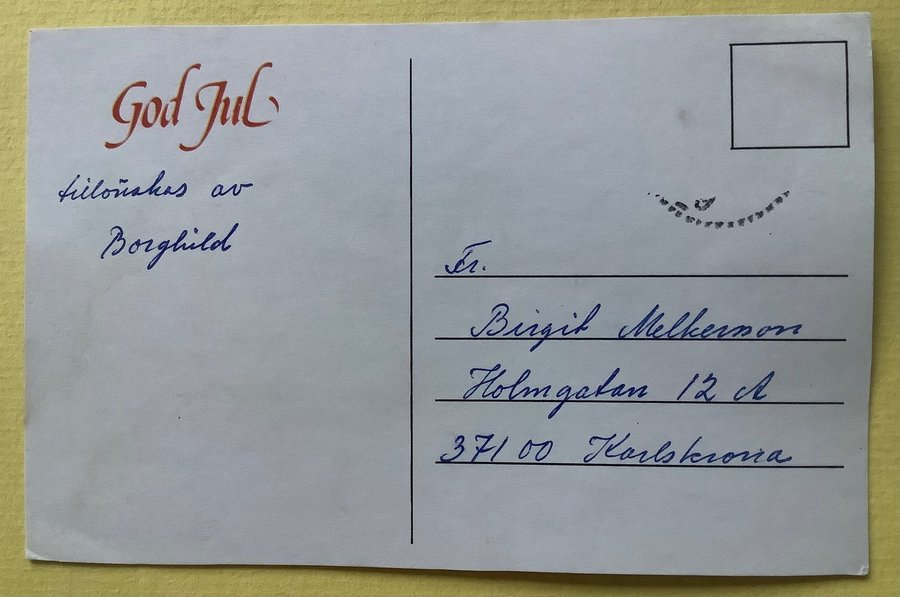 God Jul
tillönskas av
Borghild
Fr.
Birgit Melkerson
Holmgatan 12 A
371 00 Karlskrona